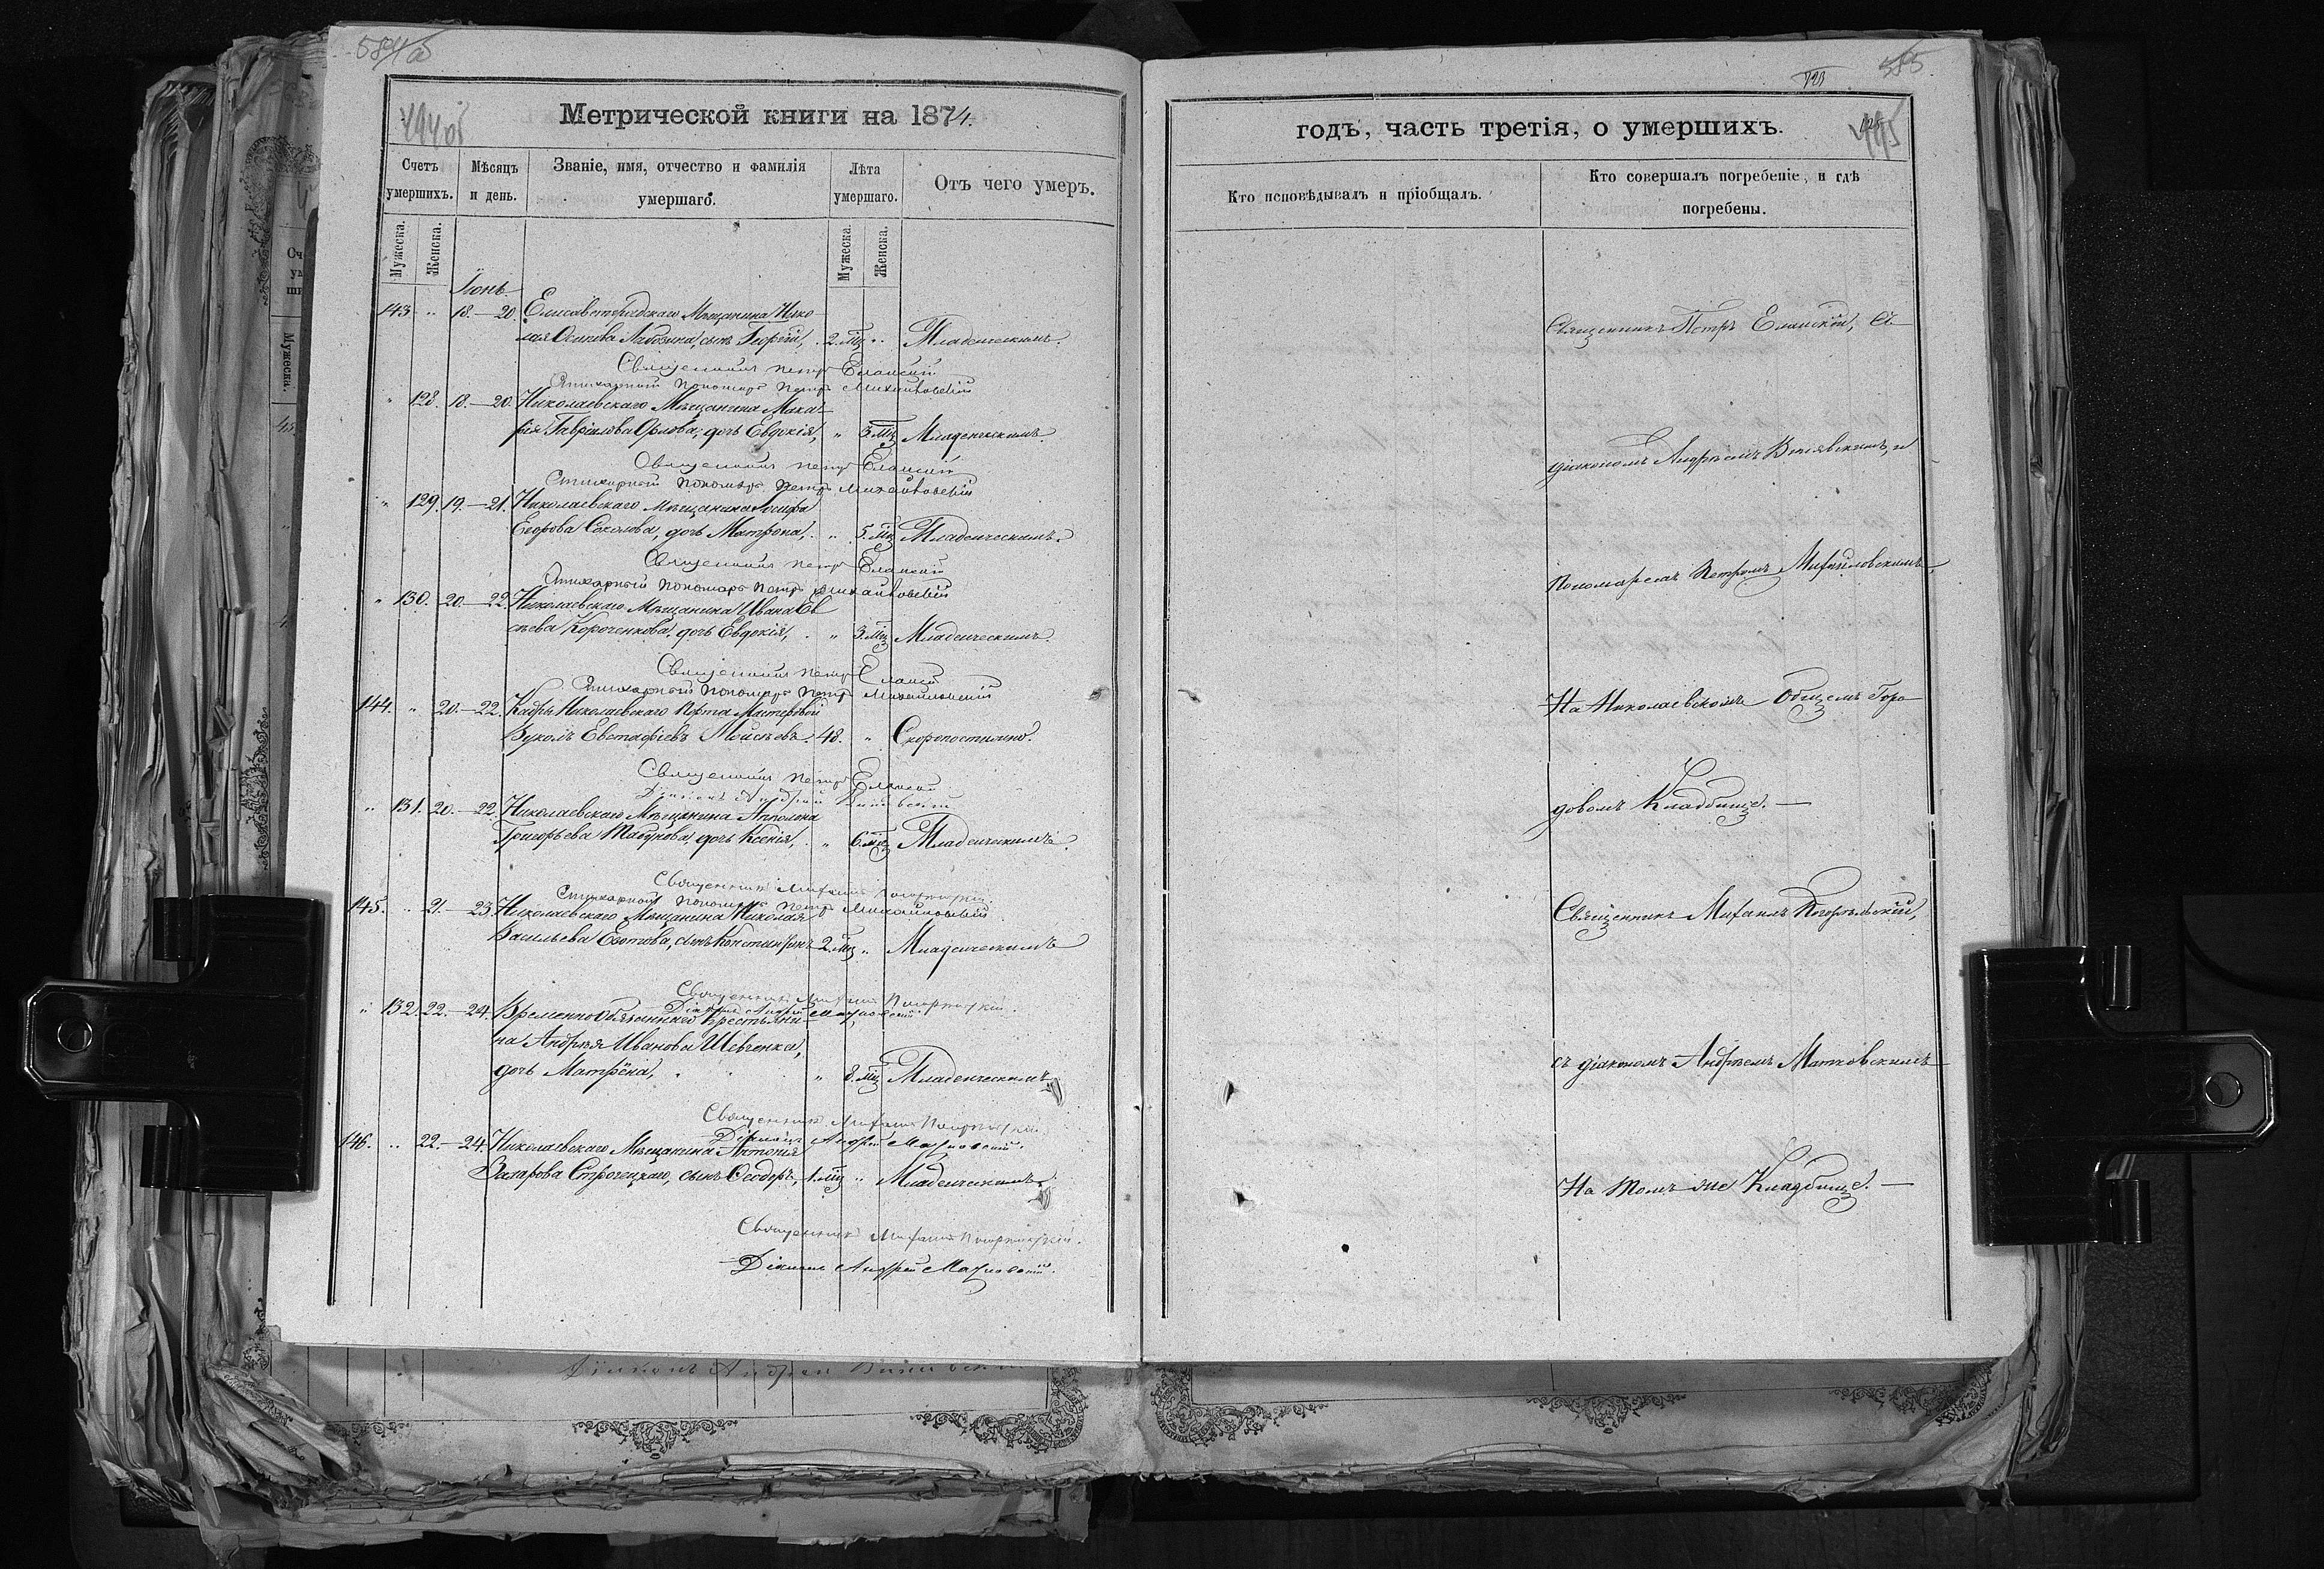 584 об
Метрической книги на 1874.
Счетъ умершихъ.
Мѣсяцъ и день.
Званіе, имя, отчество и фамилія умершаго.
Лѣта умершаго.
Отъ чего умеръ.
Мужеска.
Женска.
Мужеска.
Женска.
Іюнь
143. " 18.—20. Елисаветградскаго Мѣщанина Нико
лая Осипова сынъ Георгій, 2. мц " Младенческимъ.
Священникъ Петръ Еланскій
Стихарный Пономарь Петръ Михайловскій
" 128. 18.—20. Николаевскаго Мѣщанина Мака
рія Гавріилова Орлова, дочь Евдокія, " 3. мц Младенческимъ.
Священникъ Петръ Еланскій
Стихарный Пономарь Петръ Михайловскій
" 129. 19.—21. Николаевскаго Мѣщанина Іосифа
Егорова Соколова, дочь Матрона, " 5. мц Младенческимъ.
Священникъ Петръ Еланскій
Стихарный Пономарь Петръ Михайловскій
" 130. 20.—22. Николаевскаго Мѣщанина Ивана Ев
сѣева Короченкова, дочь Евдокія, " 3. мц Младенческимъ.
Священникъ Петръ Еланскій
Стихарный Пономарь Петръ Михайловскій
144. " 20.—22. Кадры Николаевскаго Порта Мастеровой
Вуколъ Евстафіевъ Моисѣевъ. 48. " Скоропостижно.
Священникъ Петръ Еланскій
Діаконъ Андрей
" 131. 20.—22. Николаевскаго Мѣщанина Апполона
Григорьева Табунова, дочь Ксенія, " 6. мц Младенческимъ.
Священникъ Михаилъ Погорѣльскій
Стихарный Пономарь Петръ Михайловскій
145. " 21.—23. Николаевскаго Мѣщанина Николая
Васильева сынъ Константинъ 2. мц " Младенческимъ
Священникъ Михаилъ Погорѣльскій.
Діаконъ Андрей Матковскій
" 132. 22.—24. Временно обязаннаго Крестьяни
на Андрея Иванова Шевченка,
дочь Матрёна, " 8. мц Младенческимъ
Священникъ Михаилъ Погорѣльскій
Діаконъ Андрей Матковскій.
146. " 22.—24. Николаевскаго Мѣщанина Антонія
Захарова Строчецкаго, сынъ Ѳеодоръ, 1. мц " Младенческимъ.
Священникъ Михаилъ Погорѣльскій.
Діаконъ Андрей Матковскій.
Діаконъ Андрей
585
годъ, часть третія, о умершихъ.
Кто исповѣдывалъ и пріобщалъ.
Кто совершалъ погребеніе, и гдѣ погребены.
Священникъ Петръ Еланскій, съ
діакономъ Андреемъ и
Пономаремъ Петромъ Михайловскимъ
На Николаевскомъ Общемъ Горо
довомъ Кладбище.—
Священникъ Михаилъ Погорѣльскій,
съ діакономъ Андреемъ Матковскимъ
На томъ же Кладбище.—